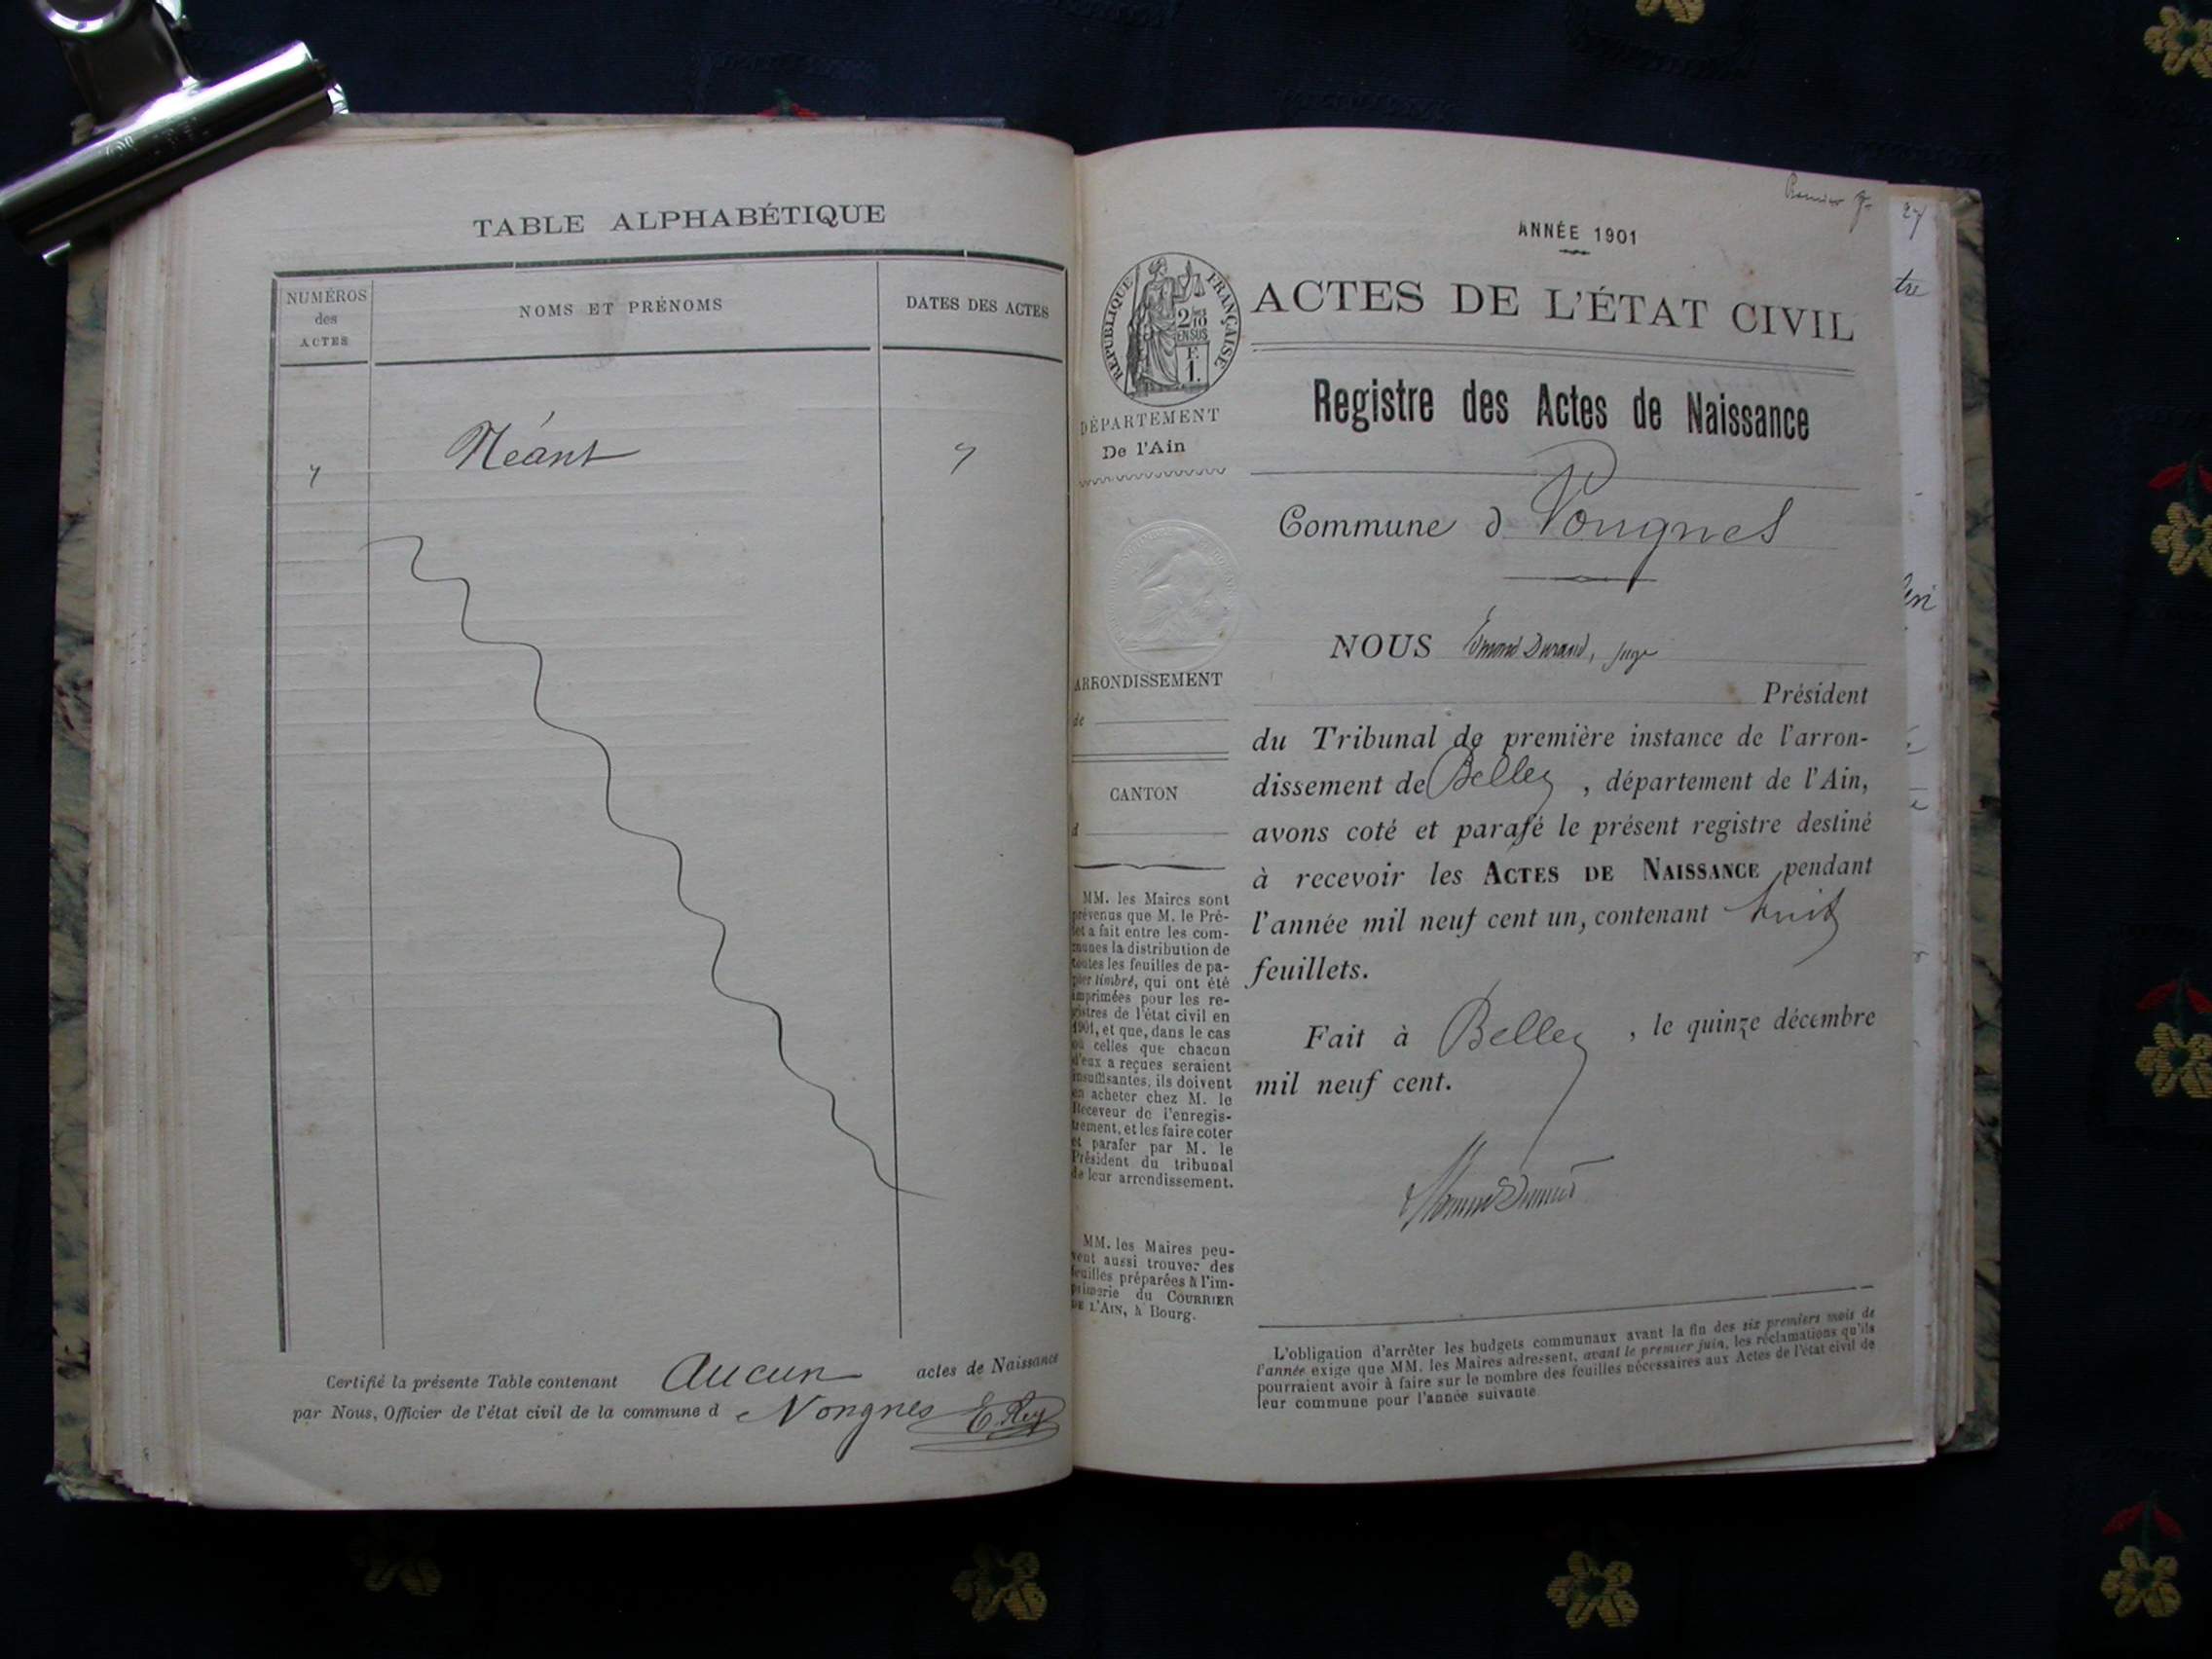 TABLE ALPHABÉTIQUE
NUMÉROS
des
ACTES
NOMS ET PRÉNOMS
DATES DES ACTES
" Néant "
Certifié la présente Table contenant Aucun actes de Naissance
par Nous, Officier de l'état civil de la commune d Vongnes E. Rey
Premier
27
tre
ANNÉE 1901
RÉPUBLIQUE FRANÇAISE
2/10
EN SUS
F.
1.
DÉPARTEMENT
De l'Ain
ARRONDISSEMENT
de
CANTON
d
MM. les Maires sont
prévenus que M. le Pré-
fet a fait entre les com-
munes la distribution de
toutes les feuilles de pa-
pier timbré, qui ont été
imprimées pour les re-
gistres de l'état civil en
1901, et que, dans le cas
où celles que chacun
d'eux a reçues seraient
insuffisantes, ils doivent
en acheter chez M. le
Receveur de l'enregis-
trement, et les faire coter
et parafer par M. le
Président du tribunal
de leur arrondissement.
MM. les Maires peu-
vent aussi trouver des
feuilles préparées à l'im-
primerie du COURRIER
DE L'AIN, à Bourg.
ACTES DE L'ÉTAT CIVIL
Registre des Actes de Naissance
Commune d Vongnes
NOUS Edmond Durand, juge
Président
du Tribunal de première instance de l'arron-
dissement de Belley, département de l'Ain,
avons coté et parafé le présent registre destiné
à recevoir les ACTES DE NAISSANCE pendant
l'année mil neuf cent un, contenant huit
feuillets.
Fait à Belley, le quinze décembre
mil neuf cent.
Edmond Durand
L'obligation d'arrêter les budgets communaux avant la fin des six premiers mois de
l'année exige que MM. les Maires adressent, avant le premier juin, les réclamations qu'ils
pourraient avoir à faire sur le nombre des feuilles nécessaires aux Actes de l'état civil de
leur commune pour l'année suivante.